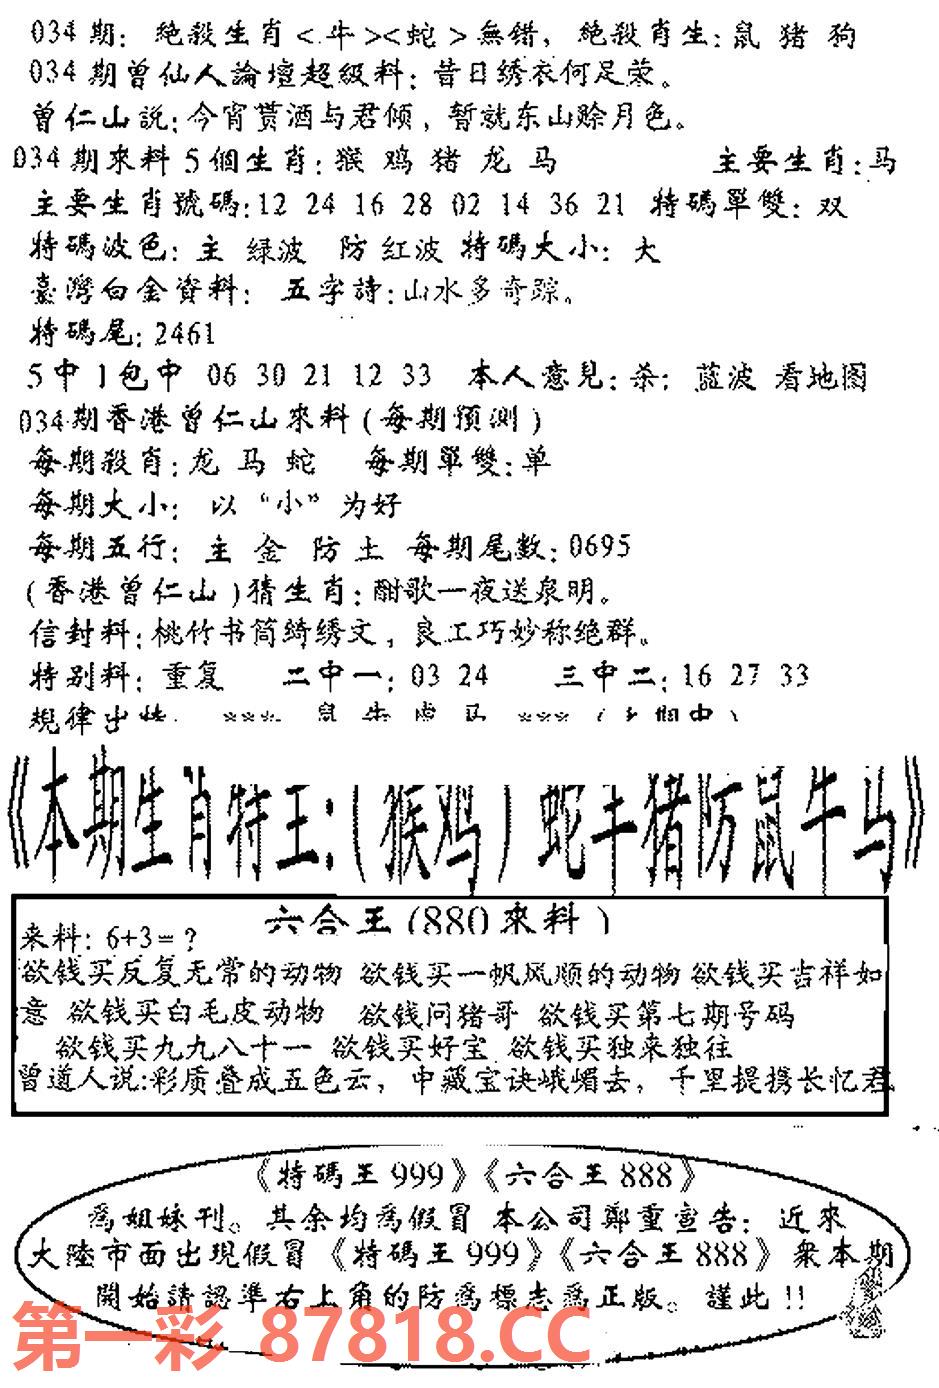 034期: 絶殺生肖<牛><蛇>無錯, 絶殺肖生:鼠 猪 狗
034期曾仙人論壇超級料:昔日绣衣何足荣。
曾仁山説:今宵贳酒与君倾, 暂就东山赊月色。
034期來料 5個生肖:猴 鸡 猪 龙 马 主要生肖:马
主要生肖號碼:12 24 16 28 02 14 36 21 特碼單雙: 双
特碼波色: 主 绿波 防 红波 特碼大小: 大
臺灣白金資料: 五字詩:山水多奇踪。
特碼尾:2461
5中1包中 06 30 21 12 33 本人意見:杀: 蓝波 看地图
034期香港曾仁山來料(每期預測)
每期殺肖:龙 马 蛇 每期單雙:单
每期大小: 以“小”为好
每期五行: 主 金 防 土 每期尾数:0695
(香港曾仁山)猜生肖:酣歌一夜送泉明。
信封料:桃竹书简绮绣文, 良工巧妙称绝群。
特别料: 重复 二中一: 03 24 三中二:16 27 33
規律出特: *** 鼠 牛 虎 马 ***
《本期生肖特王:(猴鸡)蛇羊猪防鼠牛马》
六合王(880來料)
来料: 6+3=?
欲钱买反复无常的动物 欲钱买一帆风顺的动物 欲钱买吉祥如
意 欲钱买白毛皮动物 欲钱问猪哥 欲钱买第七期号码
欲钱买九九八十一 欲钱买好宝 欲钱买独来独往
曾道人说:彩质叠成五色云, 中藏宝诀峨嵋去, 千里提携长忆君
《特碼王999》《六合王888》
爲姐妹刊。其余均爲假冒 本公司鄭重宣告: 近來
大陸市面出現假冒《特碼王999》《六合王888》衆本期
開始請認準右上角的防爲標志爲正版。謹此!!
第一彩 87818.CC